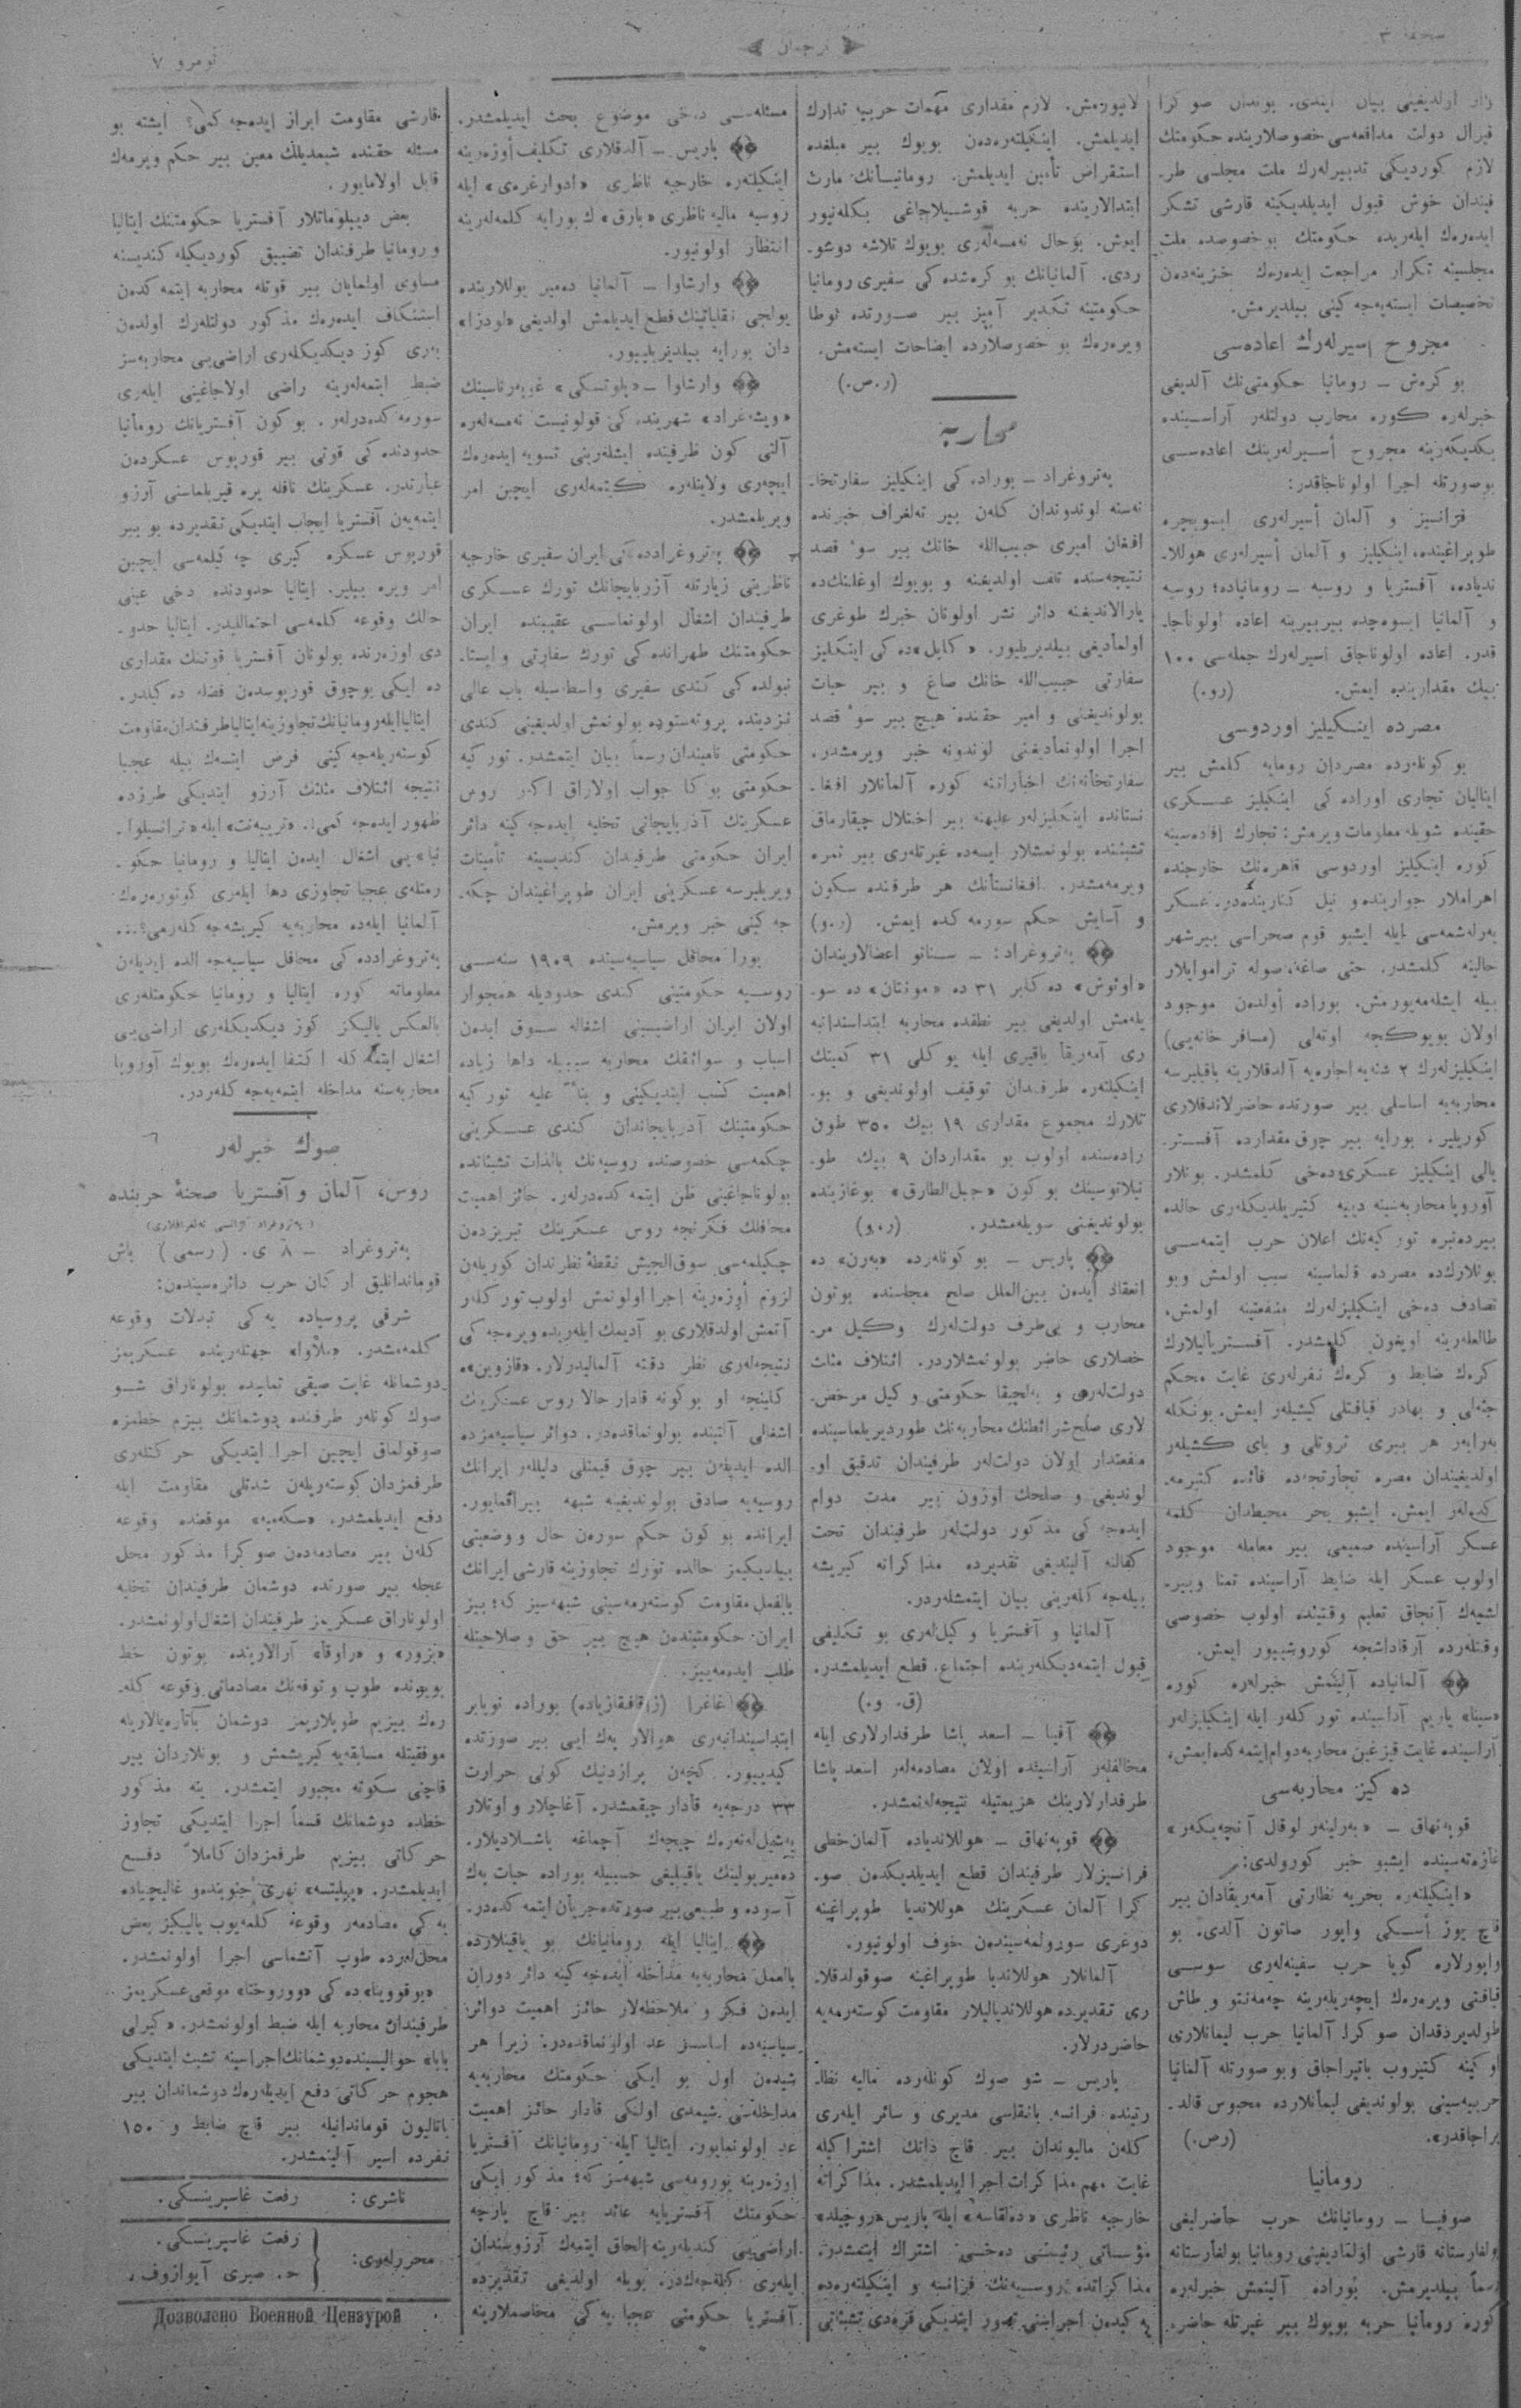 صحفه ٣
ترجمان
نومرو ٧
زار اولدیغینی بیان ایتدی. بوندان صوکرا
لازم کوردیکی تدبیرلەرك ملت مجلسی طر-
فیندان خوش قبول ایدیلدیکینه قارشی تشکر
ایدەرەك ایلەریده حکومتك بو خصوصده ملت
مجلسینه تکرار مراجعت ایدەرەك خزینەدەن
تخصیصات ایستەیەجەکینی بیلدیرمش.
مجروح اسیرلەرك اعادەسی
بوکرەش – رومانیا حکومتی‌نك آلدیغی
خبرلەره کوره محارب دولتلەر آراسینده
یکدیکەرینه مجروح أسیرلەرینك اعادەسی
بوصورتله اجرا اولوناجاقدر:
فرانسیز و آلمان أسیرلەری ایسویچره
طوپراغینده، اینکیلیز و آلمان أسیرلەری هوللا-
ندیاده، آفستریا و روسیه – رومانیاده؛ روسیه
و آلمانیا ایسوەچده بیربیرینه اعاده اولوناجا-
قدر. اعاده اولوناجاق اسیرلەرك جملەسی ١٠٠
بیك مقدارینده ایمش. (رو.)
مصرده اینکیلیز اوردوسی
بو کونلەرده مصردان رومایه کلمش بیر
ایتالیان تجاری اوراده کی اینکیلیز عسکری
حقینده شویله معلومات ویرمش: تجارك افادەسینه
کوره اینکیلیز اوردوسی قاهرەنك خارجنده
اهراملار جوارینده و نیل کنارینده‌در. عسکر
یەرلەشمەسی ایله ایشبو قوم صحراسی بیر شهر
حالینه کلمشدر. حتی صاغه، صوله تراموایلار
بیله ایشلەمەیورمش. بوراده اولدەن موجود
اولان بویوکجه اوتەلی (مسافر خانەیی)
اینکیلیزلەرك ٢ سنەیه اجارەیه آلدقلارینه باقیلیرسه
محاربەیه اساسلی بیر صورتده حاضرلاندقلاری
کوریلیر. بورایه بیر چوق مقدارده آفستر-
یالی اینکیلیز عسکری دەخی کلمشدر. بونلار
آوروپا محاربەسینه دییه کتیریلدیکلەری حالده
بیردەنبره تورکیەنك اعلان حرب ایتمەسی
بونلارك‌ده مصرده قالماسینه سبب اولمش وبو
تصادف دەخی اینکیلیزلەرك منفعتینه اولمش،
طالعلەرینه اویغون کلمشدر. آفستریالیلارك
کرەك ضابط و کرەك نفرلەری غایت محکم
جثەلی و بهادر قیافتلی کیشیلەر ایمش. بونکله
بەرابەر هر بیری ثروتلی و بای کشیلەر
اولدیغیندان مصره تجارتجه‌ده فائده کتیرمە-
کدەلەر ایمش. ایشبو بحر محیطدان کلمه
عسکر آراسینده صمیمی بیر معامله موجود
اولوب عسکر ایله ضابط آراسینده تمنا وبیر-
لشمەك آنجاق تعلیم وقتینده اولوب خصوصی
وقتلەرده آرقاداشجه کوروشییور ایمش.
آلمانیاده آلینمش خبرلەره کوره
«سینا» یاریم آداسینده تورکلەر ایله اینکیلیزلەر
آراسینده غایت قیزغین محاربه دوام ایتمەکده ایمش.
دەکیز محاربەسی
قوپەنهاق – «بەرلینەر لوقال آنچەیکەر»
غازەتەسینده ایشبو خبر کورولدی:
«اینکیلتەره بحریه نظارتی آمەریقادان بیر
قاچ یوز أسکی واپور صاتون آلدی. بو
واپورلاره گویا حرب سفینەلەری سوسی
قیافتی ویرەرەك ایچەریلەرینه چەمەنتو و طاش
طولدیردقدان صوکرا آلمانیا حرب لیمانلاری
اوکینه کتیروب باتیراجاق وبو صورتله آلمانیا
حربیەسینی بولوندیغی لیمانلارده محبوس قالد-
یراجاقدر». (رص.)
رومانیا
صوفیا – رومانیانك حرب حاضرلیغی
بولغارستانه قارشی اولمادیغینی رومانیا بولغارستانه
رسماً بیلدیرمش. بوراده آلینمش خبرلەره
کوره رومانیا حربه بویوك بیر غیرتله حاضر-
لانیورمش. لازم مقداری مهمات حربیه تدارك
ایدیلمش. اینکیلتەرەدەن بویوك بیر مبلغده
استقراض تأمین ایدیلمش. رومانیانك مارت
ابتدالارینده حربه قوشیلاجاغی بکلەنیور
ایمش. بوحال نەمسەلەری بویوك تلاشه دوشو-
ردی. آلمانیانك بوکرەشده کی سفیری رومانیا
حکومتینه تکدیر آمیز بیر صورتده نوطا
ویرەرەك بو خصوصلارده ایضاحات ایستەمش.
(ر.ص.)
محاربه
پەتروغراد – بوراده کی اینکیلیز سفارتخا-
نەسنه لوندوندان کلەن بیر تەلغراف خبرنده
افغان امیری حبیب‌الله خانك بیر سوٴ قصد
نتیجەسنده تلف اولدیغینه و بویوك اوغلینك‌ده
یارالاندیغنه دائر نشر اولونان خبرك طوغری
اولمادیغی بیلدیریلیور. «کابل»ده کی اینکلیز
سفارتی حبیب‌الله خانك صاغ و بیر حیات
بولوندیغنی و امیر حقنده هیچ بیر سوٴ قصد
اجرا اولونمادیغنی لوندونه خبر ویرمشدر.
سفارتخانەنك اخباراتنه کوره آلمانلار افغا-
نستانده اینکلیزلەر علیهنه بیر اختلال چیقارماق
تشبثنده بولونمشلار ایسەده غیرتلەری بیر ثمره
ویرمەمشدر. افغانستانك هر طرفنده سکون
و آسایش حکم سورمەکده ایمش. (ر.و)
پەتروغراد: – سناتو اعضالاریندان
یلەمش اولدیغی بیر نطقده محاربه ابتداسندانبه
ری آمەریقا بایراغی ایله یوکلی ٣١ کمینك
اینکیلتەره طرفندان توقیف اولوندیغی و بو-
نلارك مجموع مقداری ١٩ بیك ٣٥٠ طون
رادەسنده اولوب بو مقداردان ٩ بیك طو-
نیلاتوسینك بوکون «جبل‌الطارق» بوغازینده
بولوندیغنی سویلەمشدر. (ر.و)
پاریس – بو کونلەرده «بەرن» ده
انعقاد ایدەن بین‌الملل صلح مجلسنده بوتون
محارب و بی‌طرف دولت‌لەرك وکیل مر-
خصلاری حاضر بولونمشلاردر. ائتلاف مثلث
دولت‌لەری و بەلچیقا حکومتی وکیل مرخص-
لاری صلح شرائطنك محاربەنك طوردیریلماسینده
منفعتدار اولان دولت‌لەر طرفیندان تدقیق او-
لوندیغی و صلحك اوزون بیر مدت دوام
ایدەجەکی مذکور دولت‌لەر طرفیندان تحت
کفالته آلیندیغی تقدیرده مذاکرانه کیریشه
بیلەجەکلەرینی بیان ایتمشلەردر.
آلمانیا و آفستریا وکیل‌لەری بو تکلیفی
قبول ایتمەدیکلەرینده اجتماع قطع ایدیلمشدر.
(ق. و.)
آفیا – اسعد پاشا طرفدارلاری ایله
مخالفلەر آراسنده اولان مصادمەلەر اسعد پاشا
طرفدارلارینك هزیمتیله نتیجەلەنمشدر.
قوپەنهاق – هوللاندیاده آلمان خطی
فرانسیزلار طرفیندان قطع ایدیلدیکدەن صو-
کرا آلمان عسکرینك هوللاندیا طوپراغینه
دوغری سورولمەسیندەن خوف اولونیور.
آلمانلار هوللاندیا طوپراغینه صوقولدقلا-
ری تقدیرده هوللاندیالیلار مقاومت کوستەرمەیه
حاضردرلار.
پاریس – شو صوك کونلەرده مالیه نظا-
رتینده فرانسه بانقاسی مدیری و سائر ایلەری
کلەن مالیوندان بیر قاچ ذاتك اشتراکیله
غایت مهم مذاکرات اجرا ایدیلمشدر. مذاکراته
خارجیه ناظری «دەلقاسه» ایله پاریس «روچیلد»
مؤسساتی رئیسی دەخی اشتراك ایتمشدر.
مذاکراتده روسیەنك فرانسه و اینکلتەرەده
مسئلەسی دەخی موضوع بحث ایدیلمشدر.
پاریس – آلدقلاری تکلیف أوزەرینه
اینکیلتەره خارجیه ناظری «ادوارغرەی» ایله
روسیه مالیه ناظری «بارق»ك بورایه کلمەلەرینه
انتظار اولونیور.
وارشاوا – آلمانیا دەمیر یوللارینده
یولجی نقلیاتینك قطع ایدیلمش اولدیغی «لودزا»
دان بورایه بیلدیریلییور.
وارشاوا – «پلوتسکی» غوبەرناسینك
«ویشەغراد» شهرینده کی قولونیست نەمسەلەره
آلتی کون ظرفینده ایشلەرینی تسویه ایدەرەك
ایچەری ولایتلەره کیتمەلەری ایچین امر
ویریلمشدر.
پەتروغرادده کی ایران سفیری خارجیه
ناظرینی زیارتله آزربایجانك تورك عسکری
طرفیندان اشغال اولونماسی عقیبنده ایران
حکومتنك طهرانده کی تورك سفارتی و ایستا-
نبولده کی کندی سفیری واسطەسیله باب عالی
نزدینده پروتەستوده بولونمش اولدیغینی کندی
حکومتی نامیندان رسماً بیان ایتمشدر. تورکیه
حکومتی بوکا جواب اولاراق اکر روس
عسکرینك آذربایجانی تخلیه ایدەجەکینه دائر
ایران حکومتی طرفیندان کندیسینه تأمینات
ویریلیرسه عسکرینی ایران طوپراغیندان چکە-
جەکینی خبر ویرمش.
بورا محافل سیاسیەسینده ١٩٠٩ سنەسی
روسیه حکومتینی کندی حدودیله همجوار
اولان ایران اراضیسینی اشغاله سوق ایدەن
اسباب و سوائقك محاربه سببیله داها زیاده
اهمیت کسب ایتدیکینی و بناءً علیه تورکیه
حکومتینك آذربایجاندان کندی عسکرینی
چکمەسی خصوصنده روسیەنك بالذات تشبثاتده
بولوناجاغینی ظن ایتمەکدەدرلەر. حائز اهمیت
محافلك فکرنجه روس عسکرینك تبریزدەن
چکیلمەسی سوق‌الجیش نقطهٔ نظرندان کوریلەن
لزوم أوزەرینه اجرا اولونمش اولوب تورکلەر
آتمش اولدقلاری بو آدیمك ایلەریده ویرەجەکی
نتیجەلەری نظر دقته آلمالیدرلار. «قازوین»ه
کلینجه او بوکونه قادار حالا روس عسکرینك
اشغالی آلتینده بولونماقدەدر. دوائر سیاسیەمزده
الده ایدیلەن بیر چوق قیمتلی دلیللەر ایرانك
روسیەیه صادق بولوندیغینه شبهه بیراقمایور.
ایرانده بوکون حکم سورەن حال و وضعیتی
بیلدیکیمز حالده تورك تجاوزینه قارشی ایرانك
بالفعل مقاومت کوستەرمەسینی شبهەسیز که؛ بیز
ایران حکومتیندەن هیچ بیر حق و صلاحیتله
طلب ایدەمەییز.
غاغرا (زاقافقازیاده) بوراده نویابر
ابتداسیندانبەری هوالار پەك ایی بیر صورتده
کیدییور. کچەن پرازدنیك کونی حرارت
٣٣ درجەیه قادار چیقمشدر. آغاچلار و اوتلار
یەشیل‌لەنەرەك چیچەك آچماغه باشلادیلار.
دەمیریولینك یاقینلیغی حسبیله بوراده حیات پەك
آسوده و طبیعی بیر صورتده جریان ایتمەکدەدر.
ایتالیا ایله رومانیانك بو یاقینلارده
بالعمل محاربەیه مداخله ایدەجەکینه دائر دوران
ایدەن فکر و ملاحظەلار حائز اهمیت دوائر
سیاسیەده اساسسز عد اولونماقدەدر: زیرا هر
شیدەن اول بو ایکی حکومتك محاربەیه
مداخلەسنی شیمدی اولکی قادار حائز اهمیت
عد اولونمایور. ایتالیا ایله رومانیانك آفستریا
اوزەرینه یورومەسی شبهەسز که؛ مذکور ایکی
حکومتك آفستریایه عائد بیر قاچ پارچه
اراضی‌یی کندیلەرینه الحاق ایتمەك آرزوسیندان
ایلەری کلەجەکدر. بویله اولدیغی تقدیرده
آفستریا حکومتی عجبا یەکی مخاصملارینه
قارشی مقاومت ابراز ایدەجەکمی؟ ایشته بو
مسئله حقنده شیمدیلك معین بیر حکم ویرمەك
قابل اولامایور.
بعض دیپلوماتلار آفستریا حکومتنك ایتالیا
و رومانیا طرفندان تضییق کوردیکیله کندیسنه
مساوی اولمایان بیر قوتله محاربه ایتمەکدەن
استنکاف ایدەرەك مذکور دولتلەرك اولدەن
بەری کوز دیکدیکلەری اراضی‌یی محاربەسز
ضبط ایتمەلەرینه راضی اولاجاغینی ایلەری
سورمەکدەدرلەر. بوکون آفستریانك رومانیا
حدودنده کی قوتی بیر قورپوس عسکردەن
عبارتدر. عسکرینك نافله یره قیریلماسنی آرزو
ایتمەیەن آفستریا ایجاب ایتدیکی تقدیرده بو بیر
قورپوس عسکره کیری چەکیلمەسی ایچین
امر ویره بیلیر. ایتالیا حدودنده دخی عینی
حالك وقوعه کلمەسی احتماللیدر. ایتالیا حدو-
دی اوزەرنده بولونان آفستریا قوتنك مقداری
ده ایکی بوچوق قورپوسدەن فضله دەکلدر.
ایتالیا ایله رومانیانك تجاوزینه ایتالیا طرفندان مقاومت
کوستەریلەجەکینی فرض ایتسەك بیله عجبا
نتیجه ائتلاف مثلثك آرزو ایتدیکی طرزده
ظهور ایدەجەکمی!. «تریەنت» ایله «ترانسیلوا-
نیا»یی اشغال ایدەن ایتالیا و رومانیا حکو-
متلەی عجبا تجاوزی دها ایلەری کوتورەرەك
آلمانیا ایلەده محاربەیه کیریشەجەکلەرمی؟...
پەتروغرادده کی محافل سیاسیەجه الده ایدیلەن
معلوماته کوره ایتالیا و رومانیا حکومتلەری
بالعکس یالیکز کوز دیکدیکلەری اراضی‌یی
اشغال ایتمەکله اکتفا ایدەرەك بویوك آوروپا
محاربەسنه مداخله ایتمەیەجەکلەردر.
صوك خبرلەر
روس، آلمان و آفستریا صحنهٔ حربنده
(پەتروغراد آژانسی تەلغرافلاری)
پەتروغراد – ٨ ی. (رسمی) باش
قوماندانلیق ارکان حرب دائرەسیندەن:
شرقی پروسیاده یەکی تبدلات وقوعه
کلمەمشدر. «ملاوا» جهتلەرینده عسکریمز
دوشمانله غایت صیقی تماسده بولوناراق شو
صوك کونلەر ظرفنده دوشمانك بیزم خطمزه
صوقولماق ایچین اجرا ایتدیکی حرکتلەری
طرفمزدان کوستەریلەن شدتلی مقاومت ایله
دفع ایدیلمشدر. «سکەمپه» موقعنده وقوعه
کلەن بیر مصادمەدەن صوکرا مذکور محل
عجله بیر صورتده دوشمان طرفیندان تخلیه
اولوناراق عسکریمز طرفیندان اشغال اولونمشدر.
«بزورا» و «راوقا» آرالارینده بوتون خط
بوینده طوپ و توفەنك مصادماتی وقوعه کلە-
رەك بیزیم طوپلاریمز دوشمان باتارەیالاریله
موفقیتله مسابقەیه کیریشمش و بونلاردان بیر
قاچنی سکوته مجبور ایتمشدر. ینه مذکور
خطده دوشمانك قسماً اجرا ایتدیکی تجاوز
حرکاتی بیزیم طرفمزدان کاملاً دفع
ایدیلمشدر. «پیلیتسه» نهری جنوبنده و غالیچیاده
یەکی مصادمەلەر وقوعه کلمەیوب یالیکز بعض
محل‌لەرده طوپ آتشماسی اجرا اولونمشدر.
«بوقووینا»ده کی «ووروختا» موقعی عسکریمز
طرفیندان محاربه ایله ضبط اولونمشدر. «کیرلی
بابا» حوالیسینده دوشمانك اجراسینه تشبث ایتدیکی
هجوم حرکاتی دفع ایدیلەرەك دوشماندان بیر
باتالیون قوماندانیله بیر قاچ ضابط و ١٥٠
نفرده اسیر آلینمشدر.
ناشری: رفعت غاسپرینسکی.
محررلەری: رفعت غاسپرینسکی.
ح. صبری آیوازوف.
Дозволено Военной Цензурой